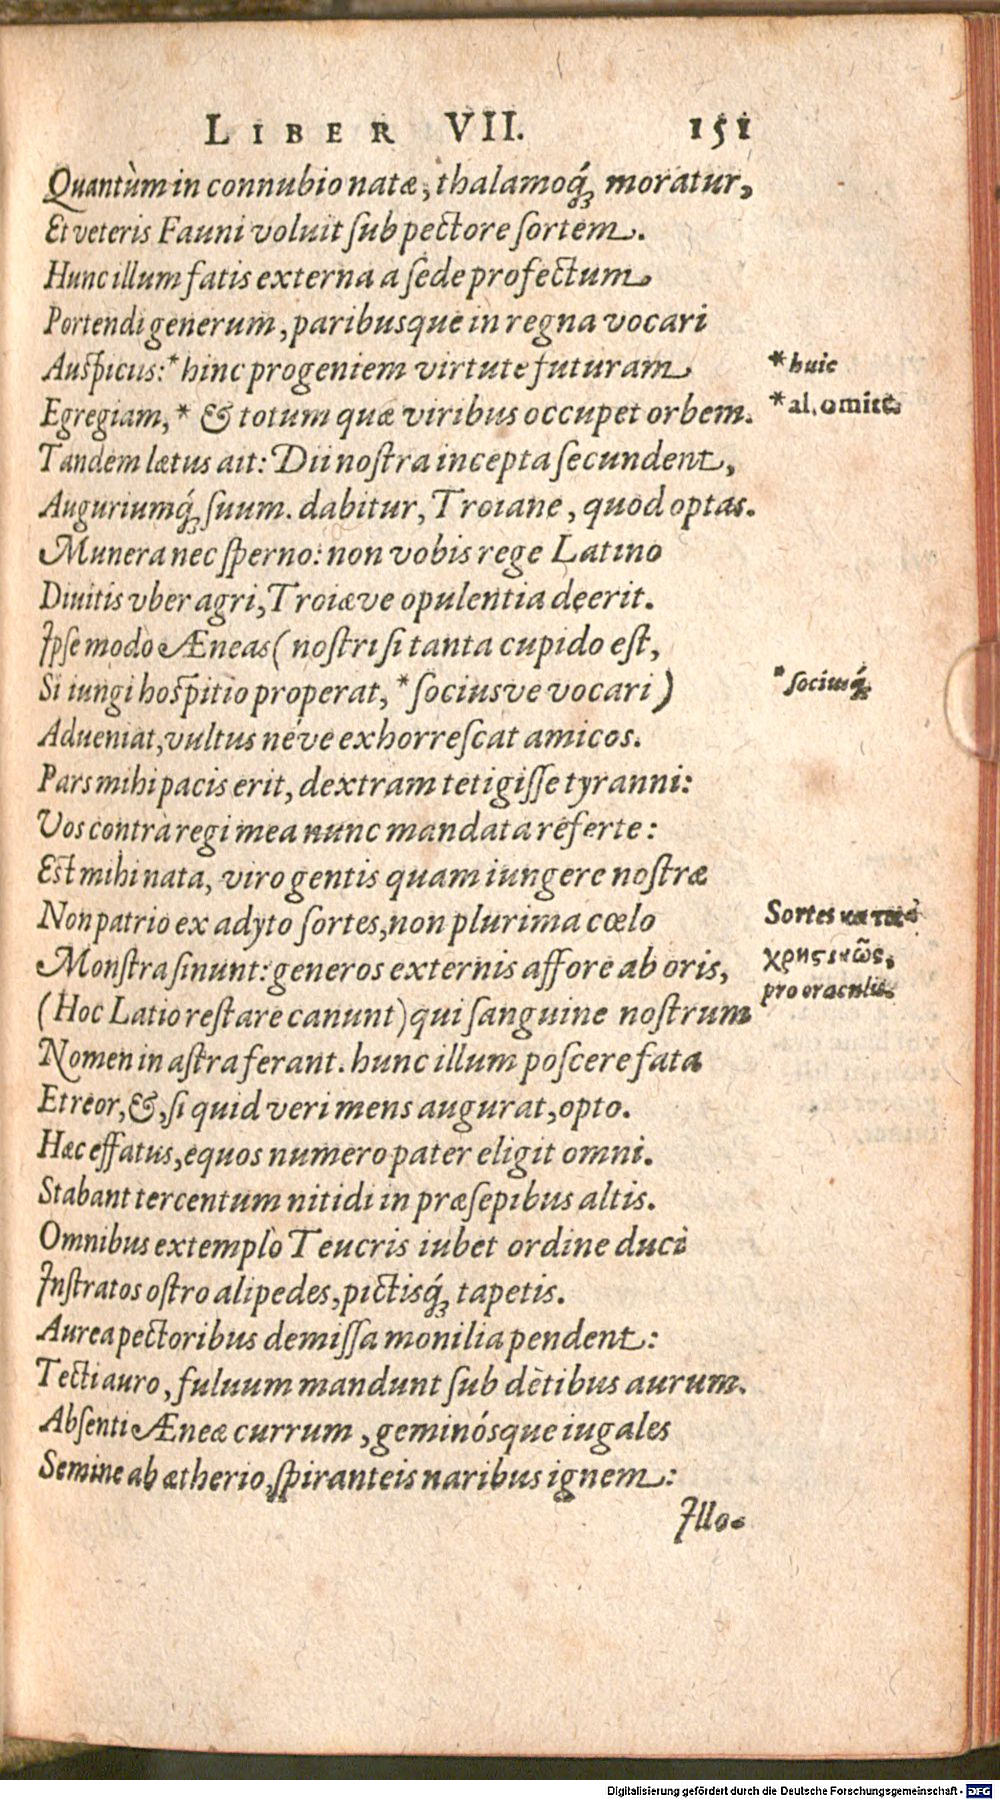 LIBER VII. 151
Quantùm in connubio natæ, thalamoq́; moratur,
Et veteris Fauni voluit ſub pectore ſortem.
Hunc illum fatis externa a ſede profectum
Portendi generum, paribusque in regna vocari
Auſpicus: * hinc progeniem virtute futuram
* huic
Egregiam, * & totum quæ viribus occupet orbem.
* al. omitt.
Tandem lætus ait: Dii noſtra incepta ſecundent,
Auguriumq́; ſuum. dabitur, Troiane, quod optas.
Munera nec ſperno: non vobis rege Latino
Diuitis vber agri, Troiæve opulentia deerit.
Ipſe modo Æneas (noſtri ſi tanta cupido eſt,
Si iungi hoſpitio properat, * ſociusve vocari)
* ſociusq́;
Adueniat, vultus néve exhorreſcat amicos.
Pars mihi pacis erit, dextram tetigiſſe tyranni:
Vos contrà regi mea nunc mandata referte:
Est mihi nata, viro gentis quam iungere noſtræ
Non patrio ex adyto ſortes, non plurima cœlo
Sortes κατα
Monſtra ſinunt: generos externis affore ab oris,
χρηςικῶς,
(Hoc Latio reſtare canunt) qui ſanguine noſtrum
pro oraculis.
Nomen in aſtra ferant. hunc illum poſcere fata
Et reor, &, ſi quid veri mens augurat, opto.
Hæc effatus, equos numero pater eligit omni.
Stabant tercentum nitidi in præſepibus altis.
Omnibus extemplò Teucris iubet ordine duci
Inſtratos oſtro alipedes, pictisq́; tapetis.
Aurea pectoribus demiſſa monilia pendent:
Tecti auro, fuluum mandunt ſub dẽtibus aurum.
Abſenti Æneæ currum, geminósque iugales
Semine ab ætherio, ſpiranteis naribus ignem:
Illo-
Digitalisierung gefördert durch die Deutsche Forschungsgemeinschaft - DFG